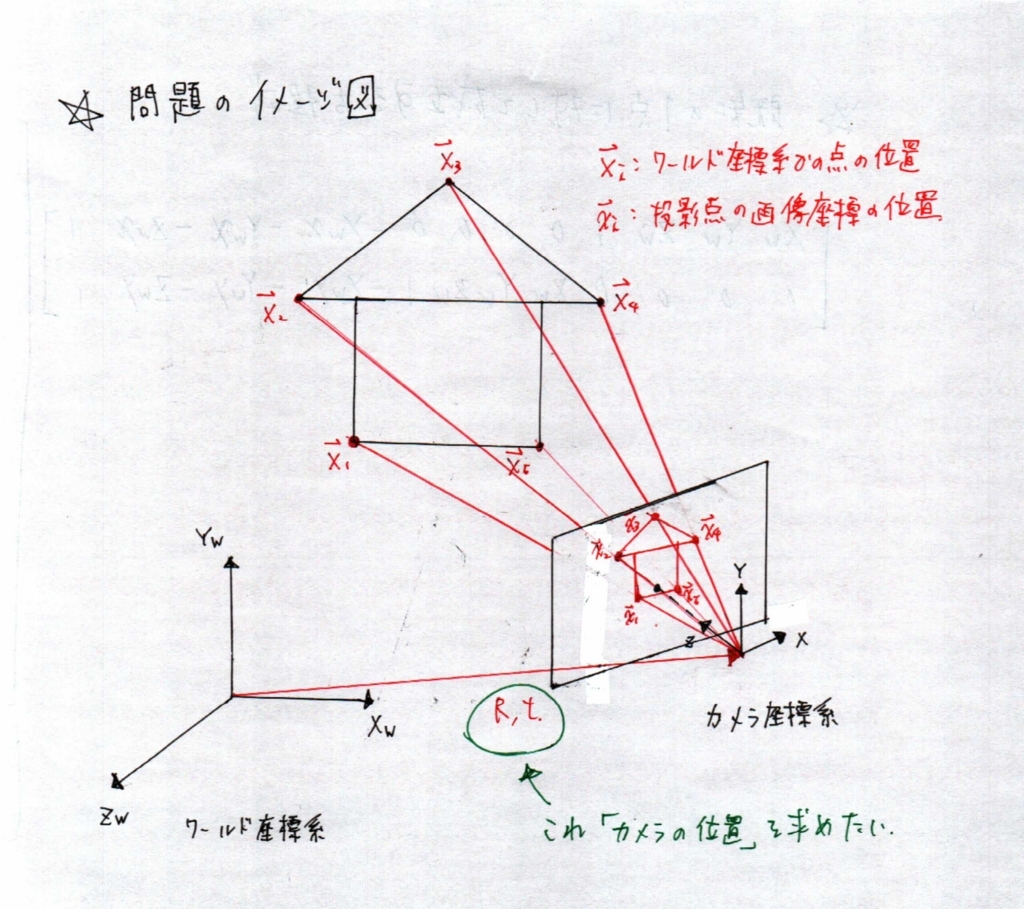 ☆ 問題のイメージ図
X⃗i：ワールド座標系での点の位置
x⃗i：投影点の画像座標の位置
X⃗3
X⃗2
X⃗4
X⃗1
X⃗5
x⃗3
x⃗4
x⃗2
x⃗1
x⃗5
Yw
Xw
Zw
ワールド座標系
R, t.
Y
X
Z
カメラ座標系
これ「カメラの位置」を求めたい.